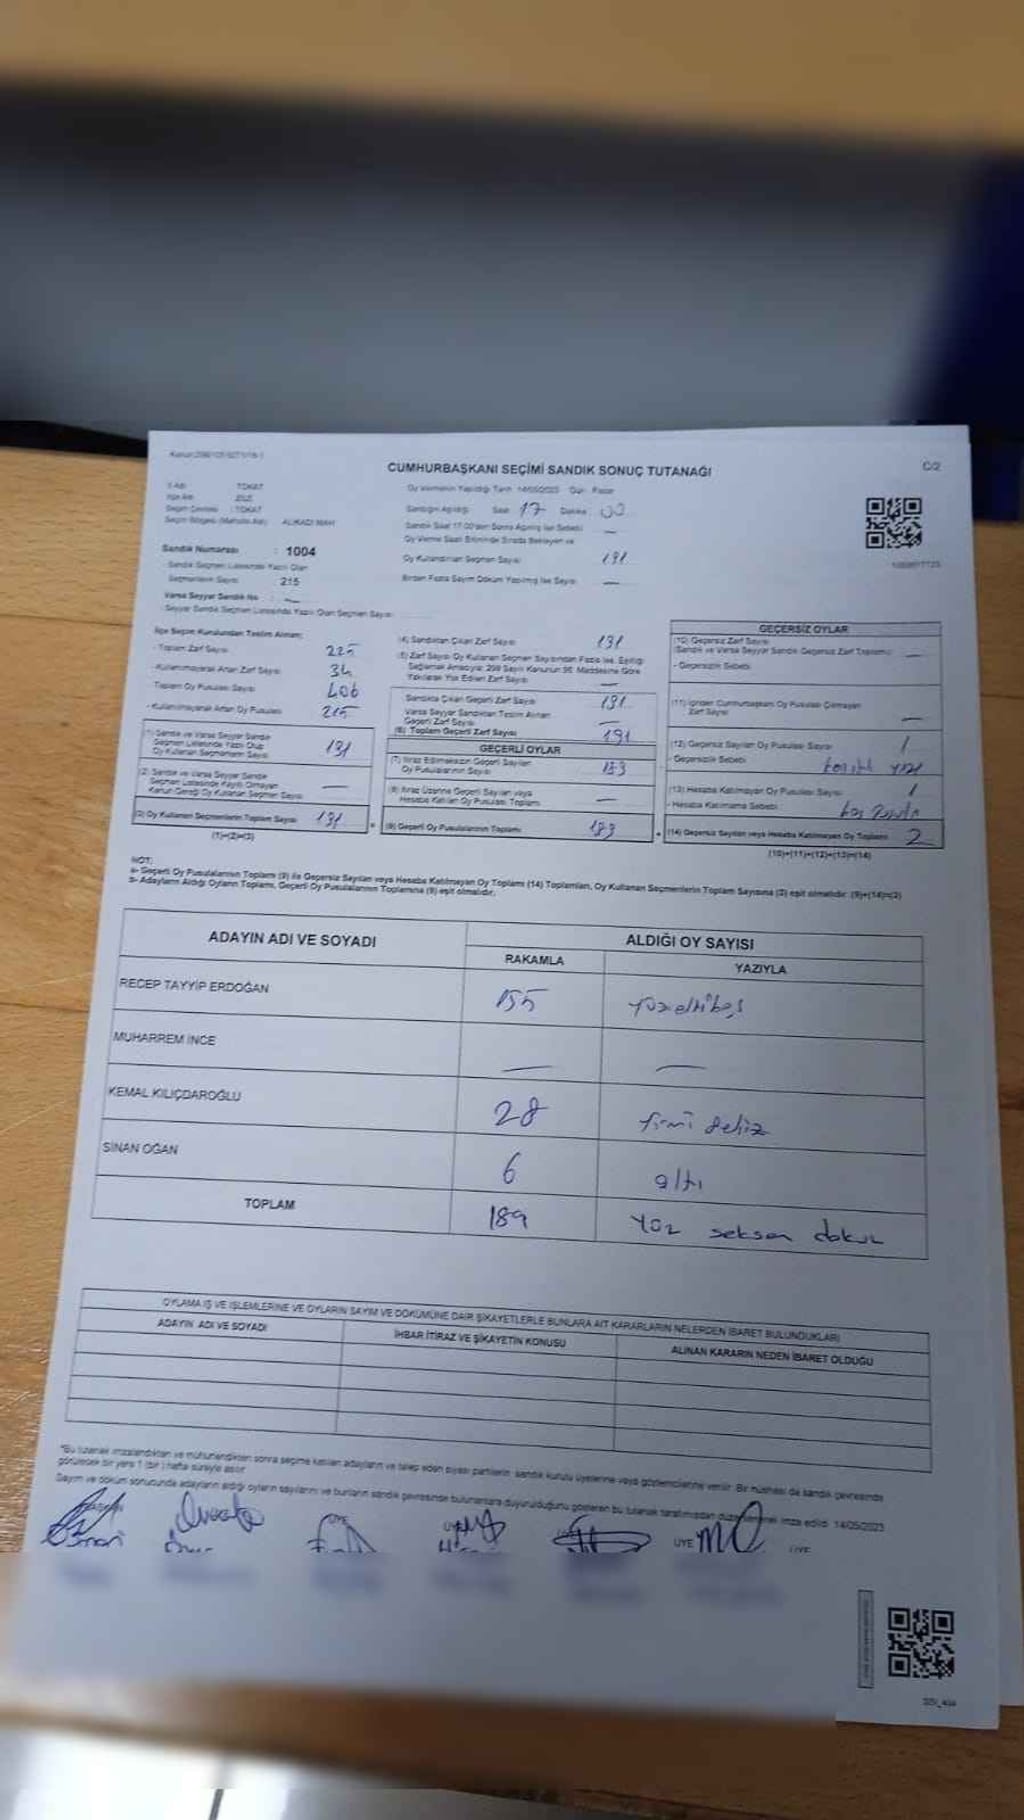 CUMHURBAŞKANI SEÇİMİ SANDIK SONUÇ TUTANAĞI
C/2
İl Adı TOKAT
İlçe Adı ZİLE
Seçim Çevresi : TOKAT
Seçim Bölgesi (Mahalle Adı) ALİKADI MAH
Sandık Numarası : 1004
Sandık Seçmen Listesinde Yazılı Olan
Seçmenlerin Sayısı 215
Varsa Seyyar Sandık No : —
Seyyar Sandık Seçmen Listesinde Yazılı Olan Seçmen Sayısı
Oy Vermenin Yapıldığı Tarih 14/05/2023 Gün: Pazar
Sandığın Açıldığı Saat 17 Dakika 00
Sandık Saat 17.00'den Sonra Açılmış İse Sebebi —
Oy Verme Saati Bitiminde Sırada Bekleyen ve
Oy Kullandırılan Seçmen Sayısı 191
Birden Fazla Sayım Döküm Yapılmış İse Sayısı —
İlçe Seçim Kurulundan Teslim Alınan;
- Toplam Zarf Sayısı 225
- Kullanılmayarak Artan Zarf Sayısı 34
Toplam Oy Pusulası Sayısı 406
- Kullanılmayarak Artan Oy Pusulası 215
(1) Sandık ve Varsa Seyyar Sandık
Seçmen Listesinde Yazılı Olup
Oy Kullanan Seçmenlerin Sayısı 191
(2) Sandık ve Varsa Seyyar Sandık
Seçmen Listesinde Kayıtlı Olmayan
Kanun Gereği Oy Kullanan Seçmen Sayısı —
(3) Oy Kullanan Seçmenlerin Toplam Sayısı 191
(1)+(2)=(3)
(4) Sandıktan Çıkan Zarf Sayısı 191
(5) Zarf Sayısı Oy Kullanan Seçmen Sayısından Fazla ise, Eşitliği
Sağlamak Amacıyla; 298 Sayılı Kanunun 98. Maddesine Göre
Yakılarak Yok Edilen Zarf Sayısı —
Sandıkta Çıkan Geçerli Zarf Sayısı 191
Varsa Seyyar Sandıktan Teslim Alınan
Geçerli Zarf Sayısı —
(6) Toplam Geçerli Zarf Sayısı 191
GEÇERLİ OYLAR
(7) İtiraz Edilmeksizin Geçerli Sayılan
Oy Pusulalarının Sayısı 189
(8) İtiraz Üzerine Geçerli Sayılan veya
Hesaba Katılan Oy Pusulası Toplamı —
(9) Geçerli Oy Pusulalarının Toplamı 189
GEÇERSİZ OYLAR
(10) Geçersiz Zarf Sayısı
(Sandık ve Varsa Seyyar Sandık Geçersiz Zarf Toplamı) —
- Geçersizlik Sebebi:
(11) İçinden Cumhurbaşkanı Oy Pusulası Çıkmayan
Zarf Sayısı —
(12) Geçersiz Sayılan Oy Pusulası Sayısı 1
- Geçersizlik Sebebi:
(13) Hesaba Katılmayan Oy Pusulası Sayısı 1
- Hesaba Katılmama Sebebi: boş
(14) Geçersiz Sayılan veya Hesaba Katılmayan Oy Toplamı 2
(10)+(11)+(12)+(13)=(14)
NOT:
a- Geçerli Oy Pusulalarının Toplamı (9) ile Geçersiz Sayılan veya Hesaba Katılmayan Oy Toplamı (14) Toplamları, Oy Kullanan Seçmenlerin Toplam Sayısına (3) eşit olmalıdır. (9)+(14)=(3)
b- Adayların Aldığı Oyların Toplamı, Geçerli Oy Pusulalarının Toplamına (9) eşit olmalıdır.
ADAYIN ADI VE SOYADI
ALDIĞI OY SAYISI
RAKAMLA YAZIYLA
RECEP TAYYİP ERDOĞAN 155 Yüzellibeş
MUHARREM İNCE — —
KEMAL KILIÇDAROĞLU 28 Yirmi sekiz
SİNAN OĞAN 6 altı
TOPLAM 189 Yüz seksen dokuz
OYLAMA İŞ VE İŞLEMLERİNE VE OYLARIN SAYIM VE DÖKÜMÜNE DAİR ŞİKAYETLERLE BUNLARA AİT KARARLARIN NELERDEN İBARET BULUNDUKLARI
ADAYIN ADI VE SOYADI İHBAR İTİRAZ VE ŞİKAYETİN KONUSU ALINAN KARARIN NEDEN İBARET OLDUĞU
*Bu tutanak imzalandıktan ve mühürlendikten sonra seçime katılan adayların ve talep eden siyasi partilerin sandık kurulu üyelerine veya gözlemcilerine verilir. Bir nüshası da sandık çevresinde
görülecek bir yere 1 (bir) hafta süreyle asılır.
Sayım ve döküm sonucunda adayların aldığı oyların sayılarını ve bunların sandık çevresinde bulunanlara duyurulduğunu gösteren bu tutanak tarafımızdan düzenlenerek imza edildi. 14/05/2023
ÜYE ÜYE